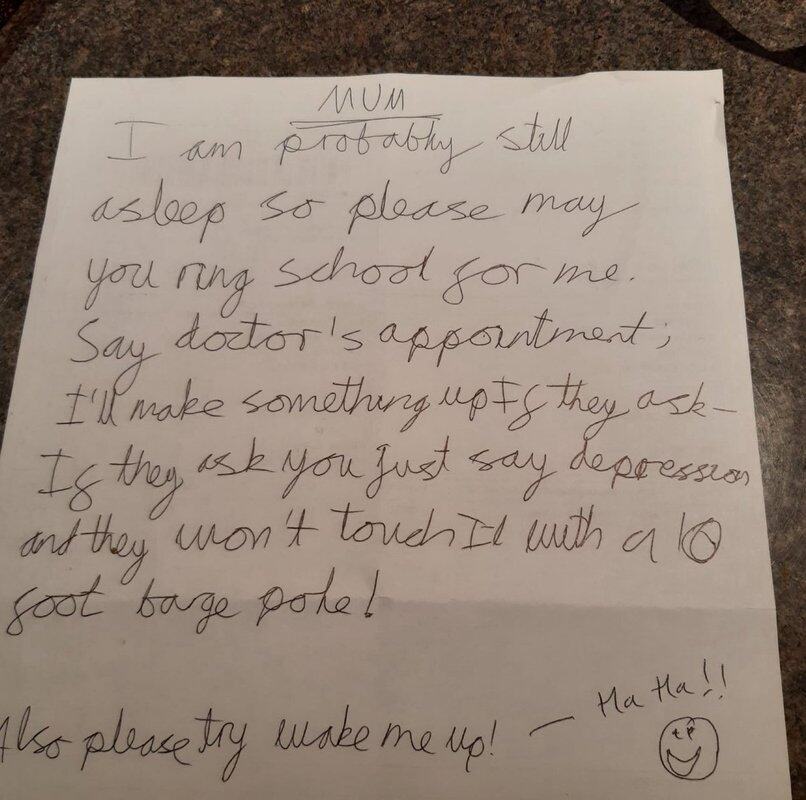 MUM
I am probably still
asleep so please may
you ring school for me.
Say doctor's appointment;
I'll make something up If they ask-
If they ask you just say depression
and they won't touch It with a 10
foot barge pole!
Also please try wake me up! - Ha Ha!!